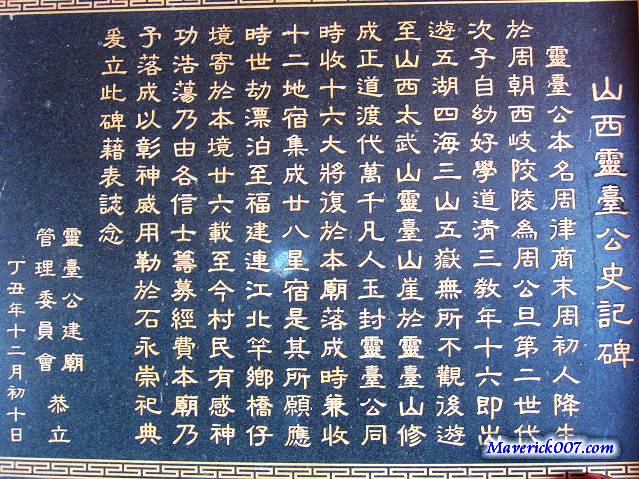 山西靈臺公史記碑
靈臺公本名周律商末周初人降生
於周朝西岐陵陵為周公旦第二世代
次子自幼好學道清三教年十六即出
遊五湖四海三山五嶽無所不觀後遊
至山西太武山靈臺山崖於靈臺山修
成正道渡代萬千凡人玉封靈臺公同
時收十六大將復於本廟落成時兼收
十二地宿集成廿八星宿是其所願應
時世劫漂泊至福建連江北竿鄉橋仔
境寄於本境廿六載至今村民有感神
功浩蕩乃由各信士籌募經費本廟乃
予落成以彰神威用勒於石永崇祀典
爰立此碑藉表誌念
靈臺公建廟
管理委員會 恭立
丁丑年十二月初十日
Maverick007.com